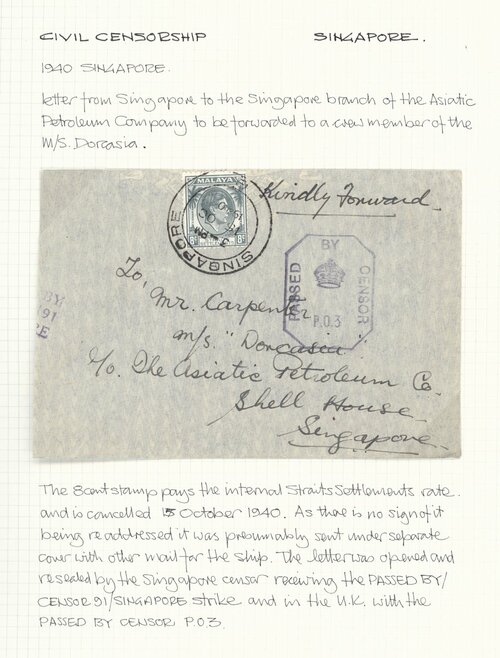 CIVIL CENSORSHIP SINGAPORE.
1940 SINGAPORE.
letter from Singapore to the Singapore branch of the Asiatic
Petroleum Company to be forwarded to a crew member of the
M/S. Dorcasia.
MALAYA
8c 8c
SINGAPORE
Kindly Forward
PASSED BY CENSOR
P.O.3
BY
91
RE
To,
Mr. Carpenter
m/s. "Dorcasia"
c/o. The Asiatic Petroleum Co.
Shell House
Singapore.
The 8 cent stamp pays the internal Straits Settlements rate.
and is cancelled 15 October 1940. As there is no sign of it
being readdressed it was presumably sent under separate
cover with other mail for the ship. The letter was opened and
resealed by the Singapore censor receiving the PASSED BY/
CENSOR 91/SINGAPORE strike and in the U.K. with the
PASSED BY CENSOR P.O.3.